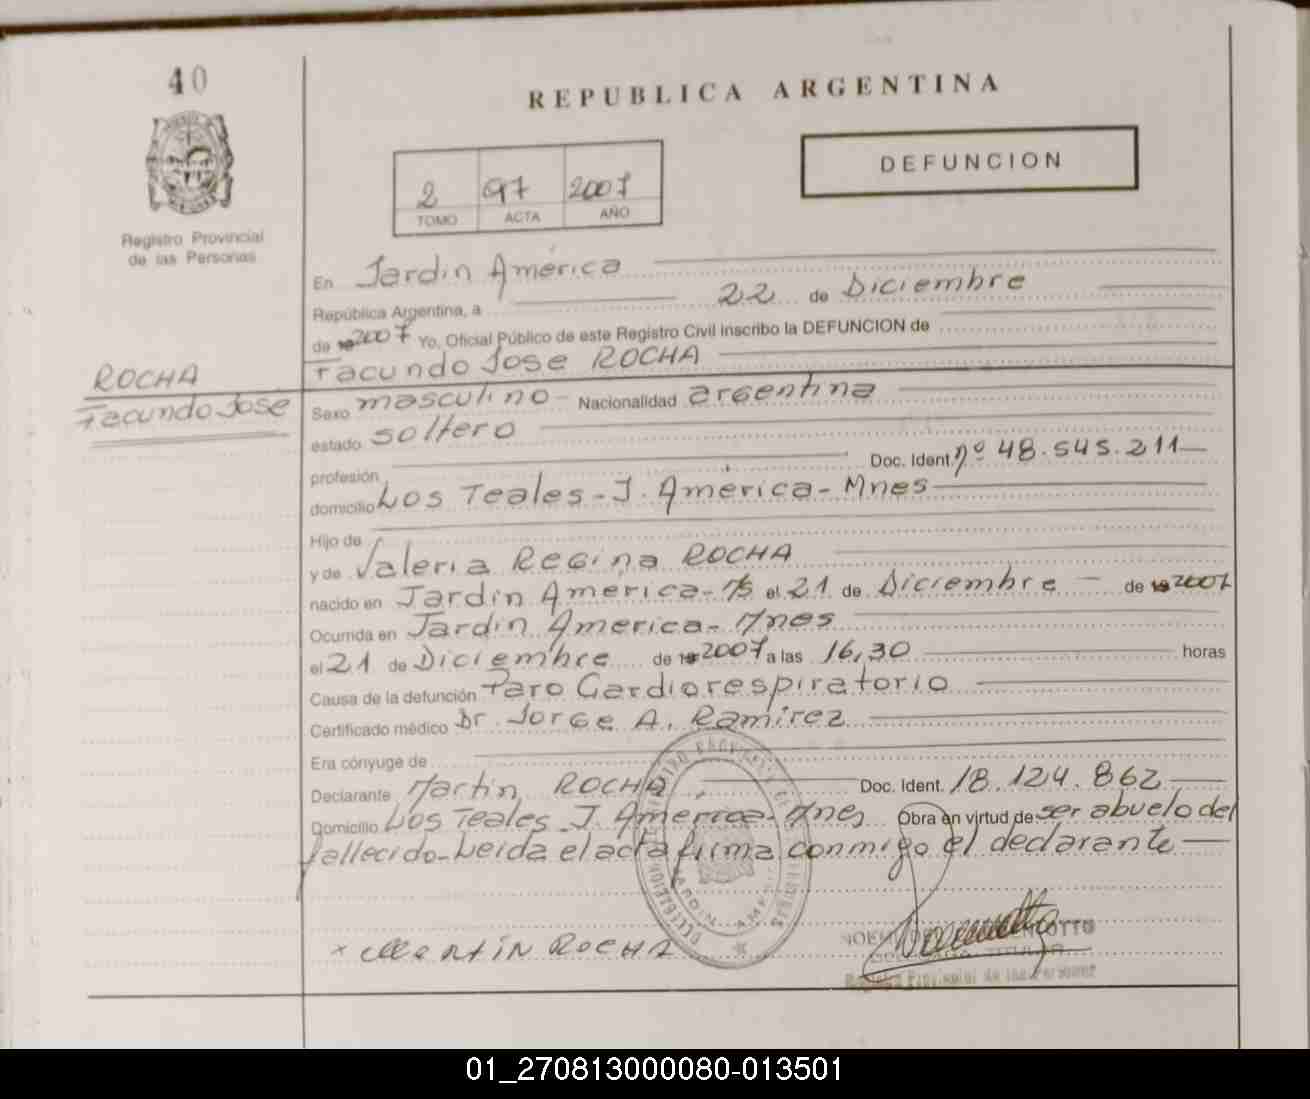 40
REPUBLICA ARGENTINA
DEFUNCION
2 97 2007
TOMO ACTA AÑO
Registro Provincial
de las Personas
En Jardin América
República Argentina, a 22 de Diciembre
de 2007 Yo, Oficial Público de este Registro Civil inscribo la DEFUNCION de
Facundo Jose ROCHA
ROCHA
Facundo Jose
Sexo masculino - Nacionalidad argentina
estado soltero
profesión Doc. Ident nº 48.545.211
domicilio Los Teales - J. América - Mnes
Hijo de
y de Valeria Regina ROCHA
nacido en Jardin America - el 21 de Diciembre - de 2007
Ocurrida en Jardin America - Mnes
el 21 de Diciembre de 2007 a las 16,30 horas
Causa de la defunción Paro Cardiorespiratorio
Certificado médico Dr. Jorge A. Ramirez
Era cónyuge de
Declarante Martin ROCHA Doc. Ident. 18.124.862
Domicilio Los Teales - J. America - Mnes Obra en virtud de ser abuelo del
fallecido - Leida el acta firma conmigo el declarante
x Martin ROCHA
Registro Provincial de las Personas
01_270813000080-013501